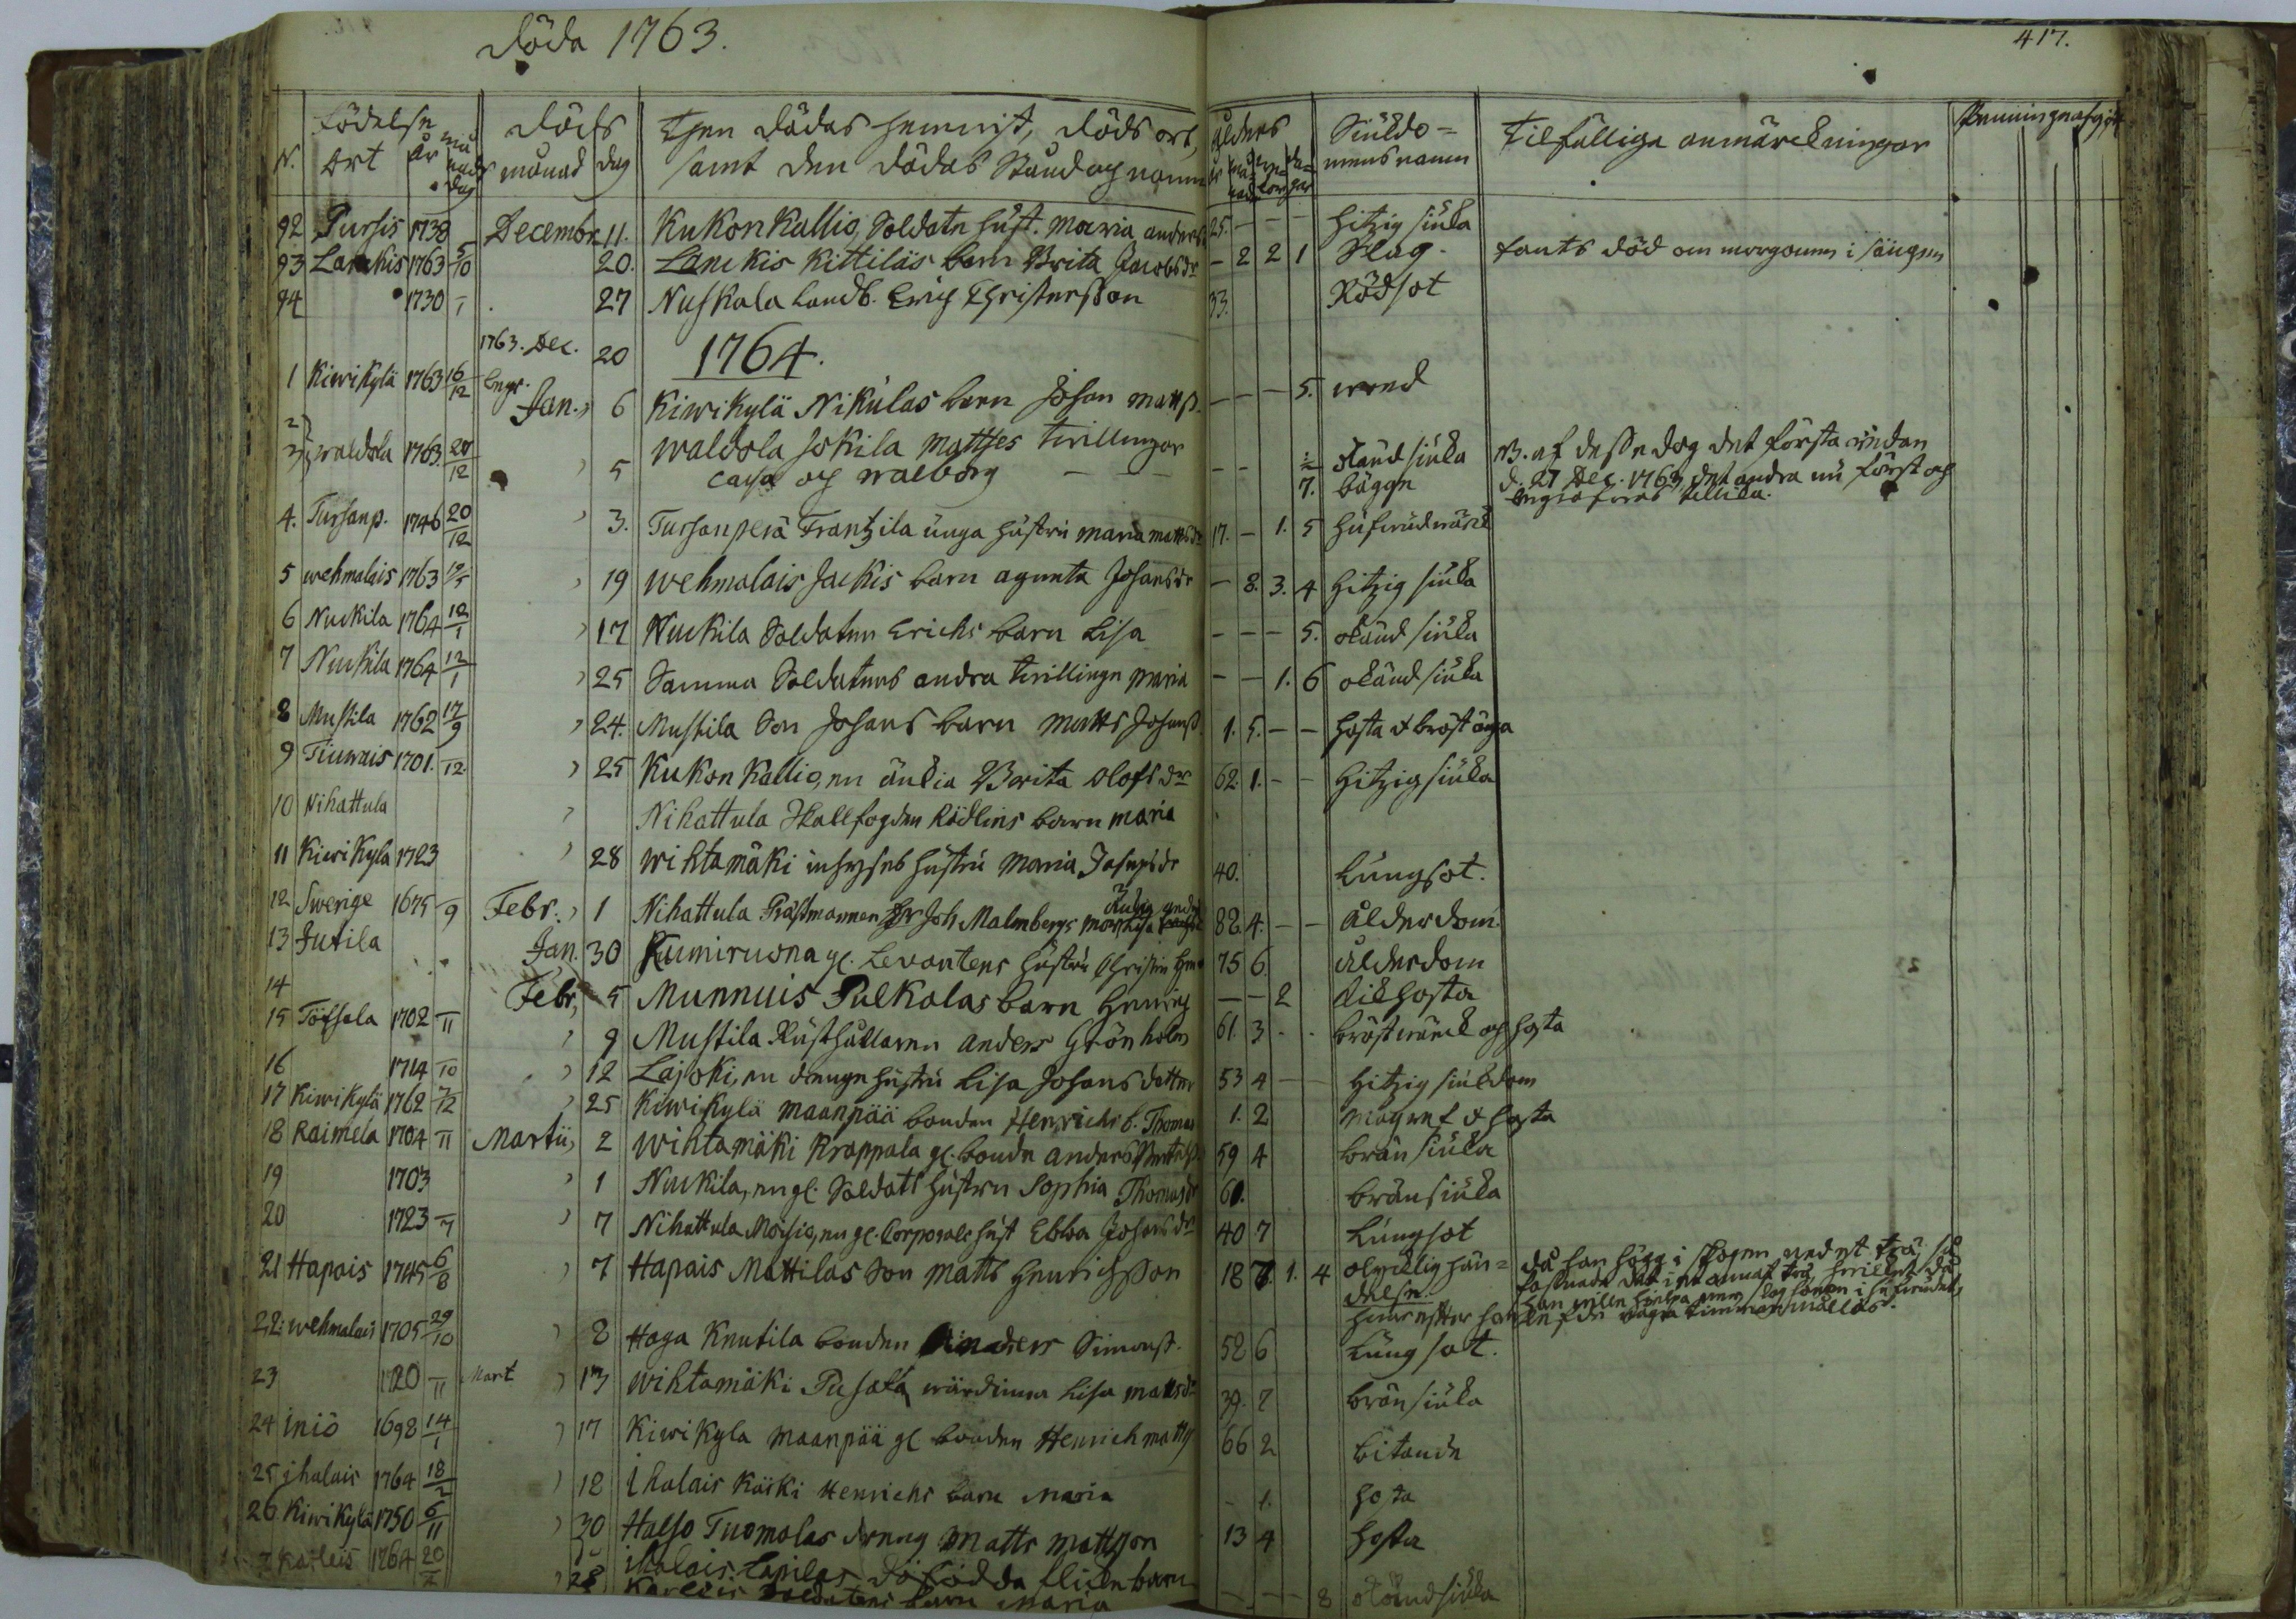 Döda 1763.
417.
N. Födelse Ort år månads dag Döds månad dag Then Dödas hemvist, Döds ort, samt den Dödas Stånd och namn ålders år månader dagar Siukdomens namn Tilfälliga anmärckningar
92 Pursis 1738 Decembr. 11. Kukonkallio, Soldatn hust. Maria anders 25. - - - hitzig siuka
93 Lanckis 1763 5/10 20. Lanckis Kittiläs barn Brita Jacobsdr - 2 2 1 Slag. fants död om morgonen i sängen
94 1730 27 Nuskala Landb. Erich Christersson 33. Rödsot
1763. Dec. 20 1764.
1 Kiwikylä 1763 16/12 begr. Jan. 6 Kiwikylä Nikulas barn Johan Matts. - - - 5. wred
2 3 Waldola 1763 20/12 5 Waldola Jokila Matthes twillingar Caisa och Walborg - - okänd siuka 7. bägge NB. af desse dog det första redan d. 27 Dec. 1763, det andra nu först och begrafvas tillika.
4. Tursanp. 1746 20/12 3. Tursanperä Frantzila unga hustru Maria Mattsdr 17. - 1. 5 hufwudwärck
5 Wehmalais 1763 19 Wehmalais Jackis barn Agneta Johansdr - 8. 3. 4 hitzig siuka
6 Nuckila 1764 12/1 17 Nuckila Soldaten Erichs barn Lisa - - - 5. okänd siuka
7 Nuckila 1764 12/1 25 Samma Soldatens andra twillinge Maria - - 1. 6 okänd siuka
8 Mustila 1762 17/9 24. Mustila Son Johans barn Matts Johanss. 1. 5. - - hosta & bröst
9 Tiuwais 1701. 12. 25 Kukonkallio, en änkia Brita Olofsdr 62. 1. - - hitzig siuka
10 Nihattula Nihattula Skallfogden Rödlins barn Maria
11 Kiwikyla 1723 28 Wihtamäki inhyses hustru Maria Josepsdr 40. Lungsot.
12 Swerige 1675 9 Febr. 1 Nihattula Prästmannen Hr Joh. Malmbergs mor Lisa 82. 4. - - ålderdom.
13 Jutila Jan. 30 Rumiruona gl. Levontens hustru Christin 75 6 ålderdom
14 Febr, 5 Munnuis Pulkalas barn Henrich - - 2 kikhosta
15 Töfsala 1702 11 9 Mustila Rusthållaren Anders Grönholm 61. 3 - - bröstwärck och hosta
16 1714 10 12 Lajoki, en drenge hustru Lisa Johansdotter 53 4 - - hitzig siukdom
17 Kiwikylä 1762 7/12 25 Kiwikylä Maanpää bonden Henrichs b. Thomas 1. 2 & hosta
18 Raimela 1704 11 Martii, 2 Wihtamäki Krappala gl. bonde Anders 59 4 brän siuka
19 1703 1 Nuckila, en gl. Soldats hustru Sophia Thomasdr 60. brän siuka
20 1723 7 7 Nihattula Moisio, en gl. Corporals hust Ebba Johansdr 40 7 Lungsot
21 Hapais 1745 6/8 7 Hapais Mattilas Son Matts Henrichsson 18 7 1. 4 olycklig händelse. Då han högg i skogen nedet trä, så fastnade det i et annat trä, hwilket då han wille hielpa ner, slog honom i hufwudet, hwarefter han lefde några timmar mållös.
22 Wehmalais 1705 29/10 8 Haga Knutila bonden Anders Simonss. 58 6 Lungsot.
23 1720 11 Mart 13 Wihtamäki Pusata wärdinna Lisa Mattsdr 39. 7 brän siuka
24 Iniö 1698 14/1 17 Kiwikyla Maanpää gl bonden Henrich Matts 66 2 bitande
25 Ihalais 1764 18/2 18 Ihalais Käski Henrichs barn Maria - 1. hosta
26 Kiwikylä 1750 6/11 30 Halso Tuomolas dreng Matts Mattsson 13 4 hosta
Ihalais Lapilas döfödda flicke barn
Karleis 1764 20 28 Karleis Soldatens barn Maria - - 8 okänd siuka